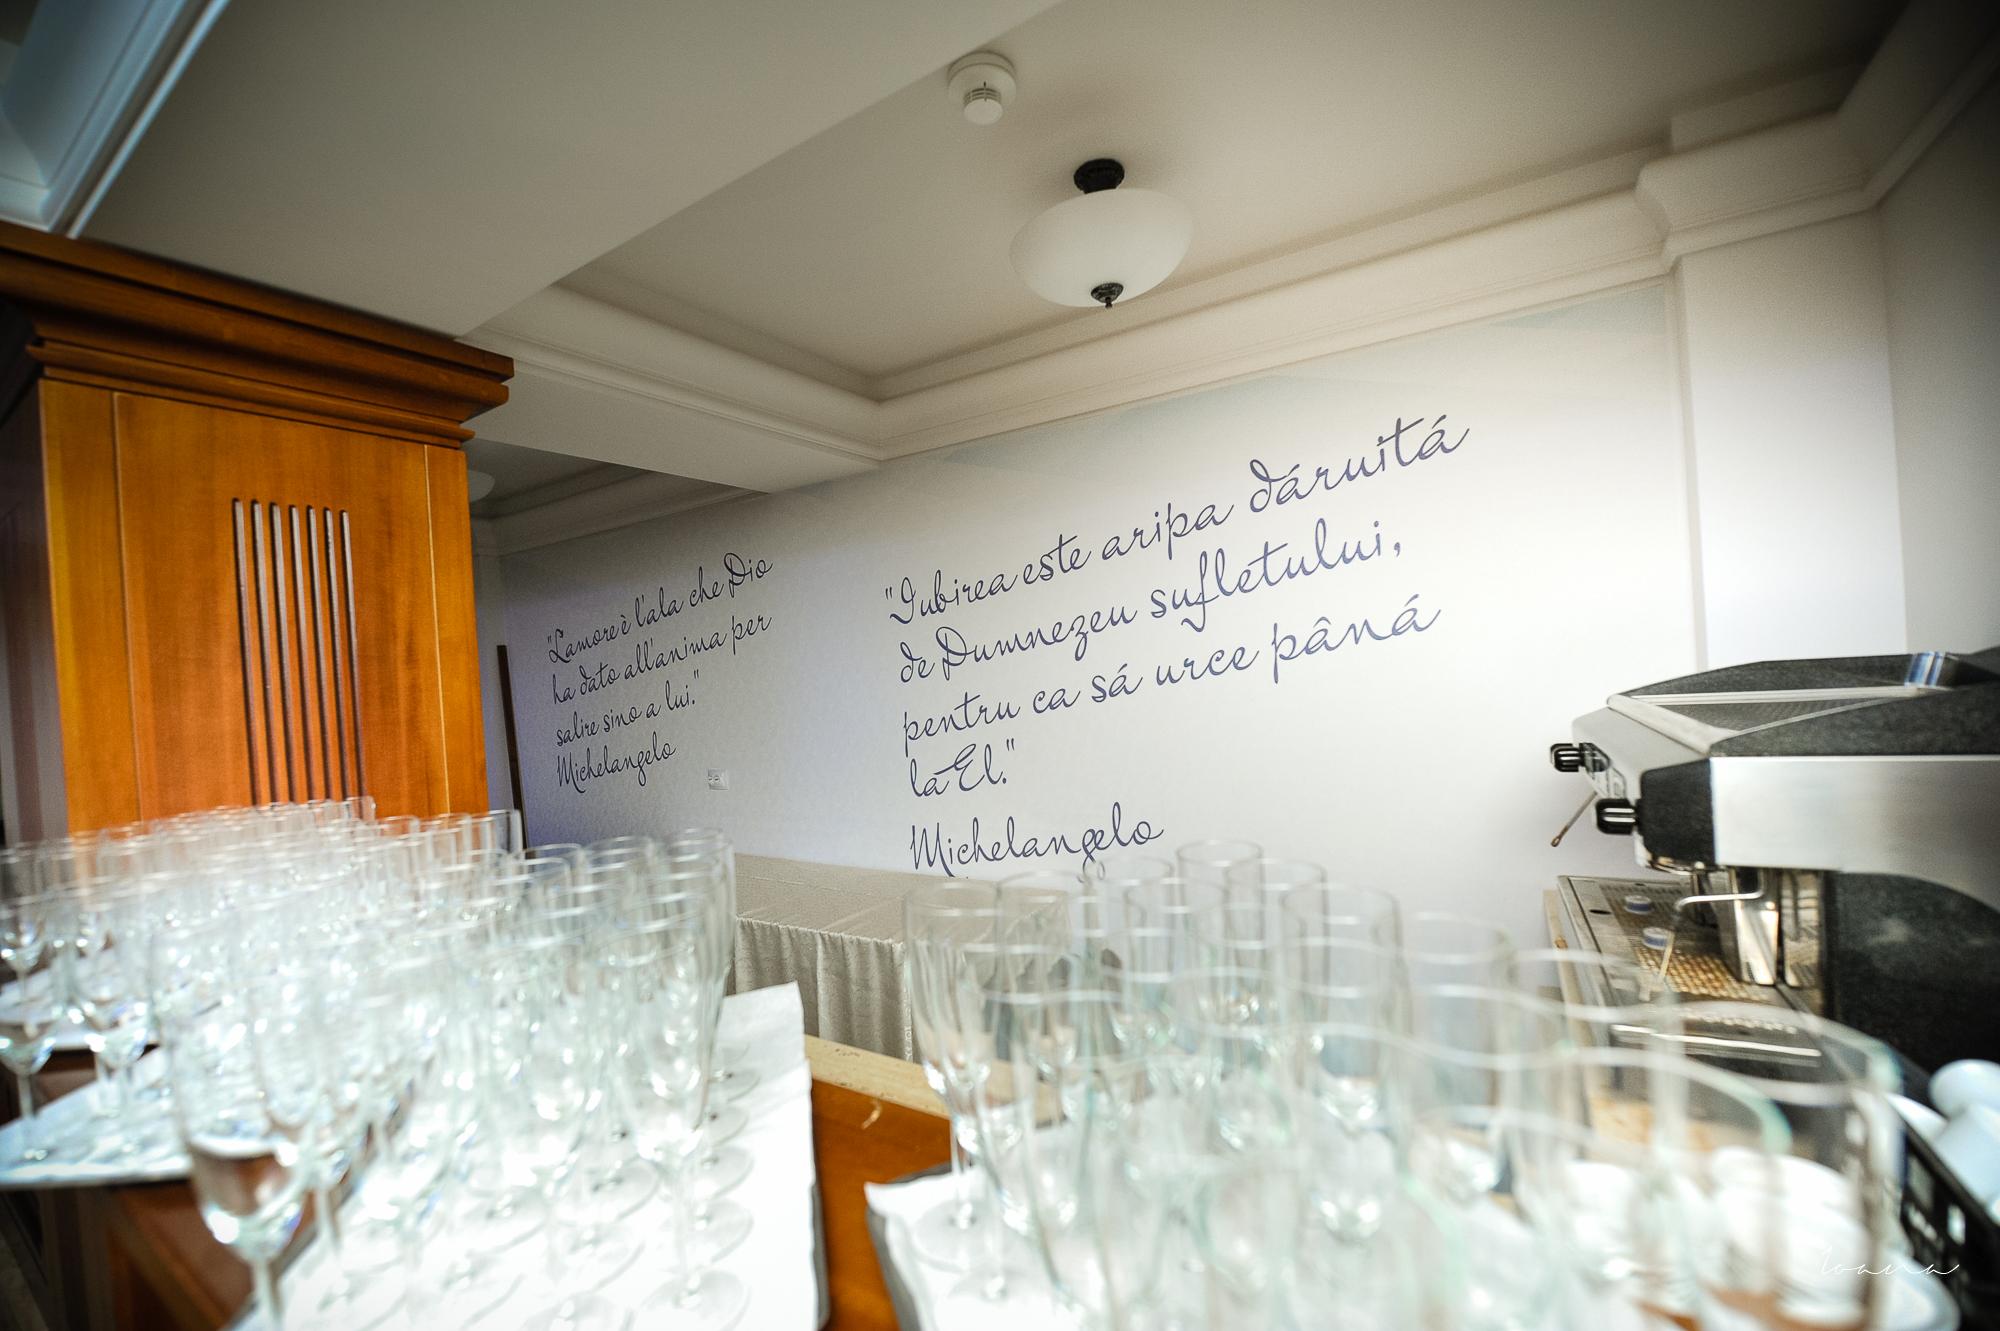 "L'amore è l'ala che Dio
ha dato all'anima per
salire sino a lui."
Michelangelo
"Iubirea este aripa dáruitá
de Dumnezeu sufletului,
pentru ca sá urce pâná
la El."
Michelangelo
Ioana